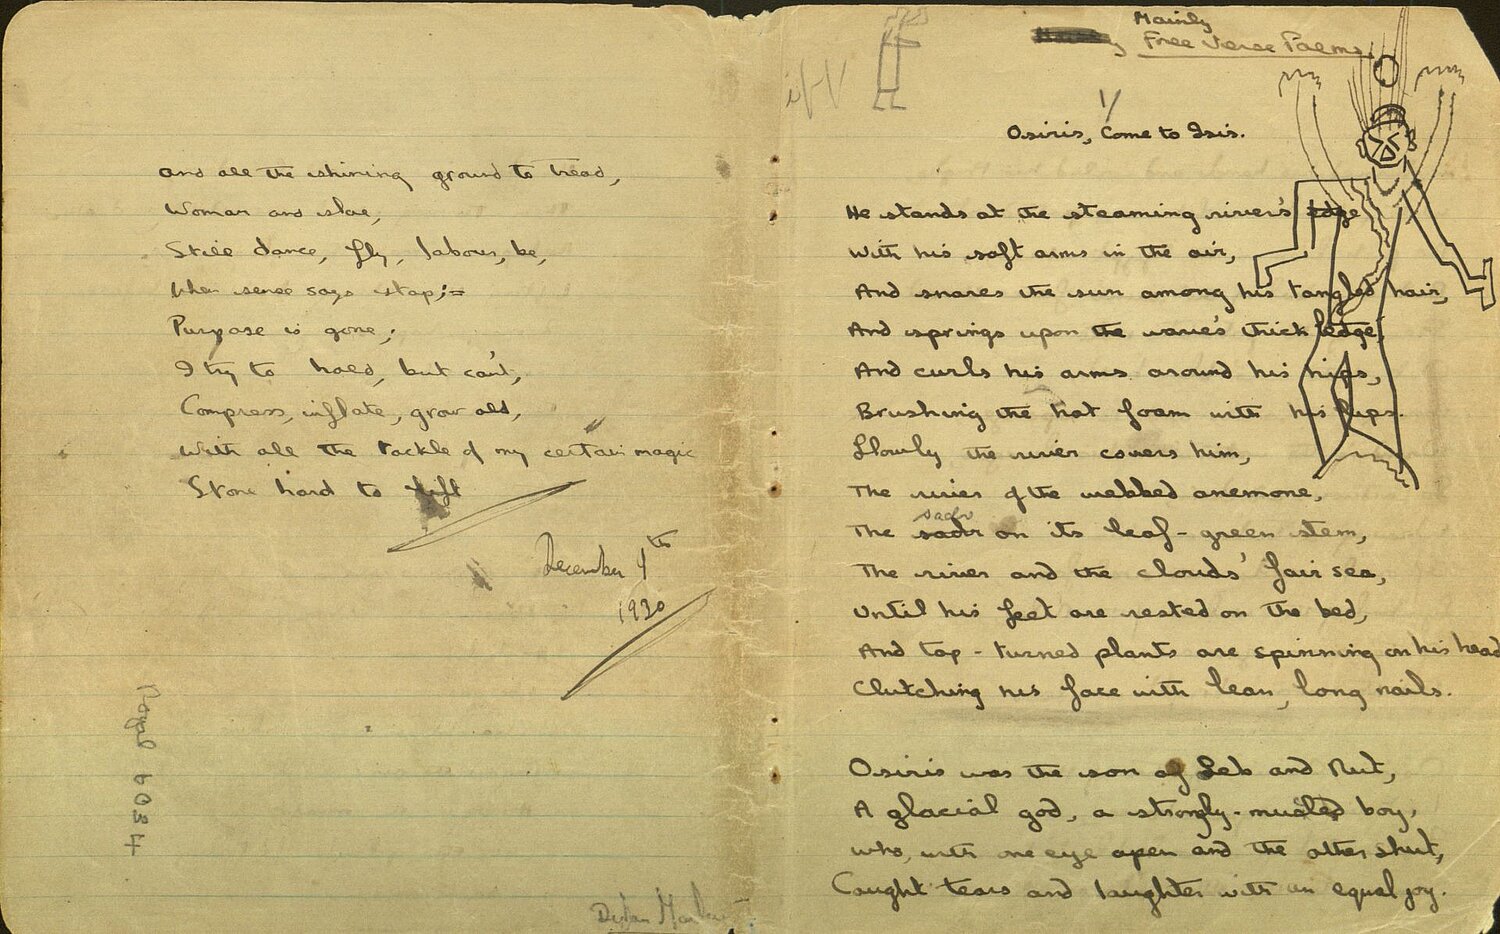 And all the shining ground to tread,
Woman and slae,
Still dance, fly, labour, be,
When sense says stop;=
Purpose is gone;
I try to hold, but can't,
Compress, inflate, grow old,
With all the tackle of my certain magic
Stone hard to lift
December 4th
1930
Mainly
Free Verse Poems.
1/
Osiris, Come to Isis.
He stands at the steaming river's edge
With his soft arms in the air,
And snares the sun among his tangled hair,
And springs upon the wave's thick ledge,
And curls his arms around his hips,
Brushing the hot foam with his lips.
Slowly the river covers him,
The river of the webbed anemone,
The on its leaf-green stem,
The river and the clouds' fair sea,
Until his feet are rested on the bed,
And top-turned plants are spinning on his head
Clutching his face with lean, long nails.
Osiris was the son of Seb and Nut,
A glacial god, a strongly-muscled boy,
Who, with one eye open and the other shut,
Caught tears and laughter with an equal joy.